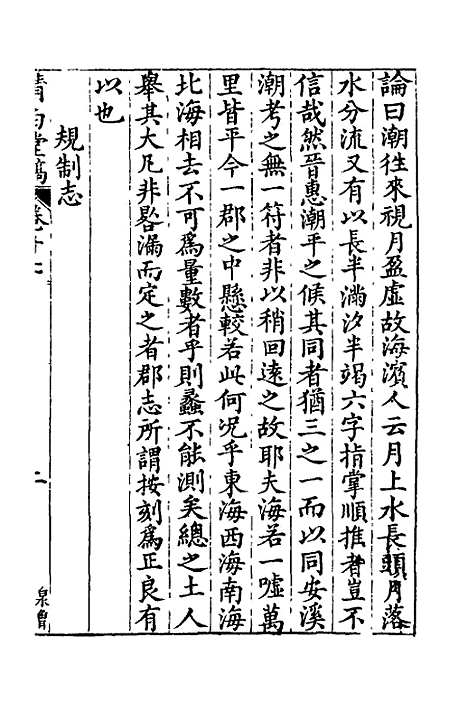 論曰潮往來視月盈虛故海濱人云月上水長頭月落
水分流又有以長半滿汐半竭六字指掌順推者豈不
信哉然晉惠潮平之候其同者猶三之一而以同安溪
潮考之無一符者非以稍回遠之故耶夫海若一噓萬
里皆平今一郡之中懸較若此何況乎東海西海南海
北海相去不可爲量數者乎則蠡不能測矣總之土人
舉其大凡非畧漏而定之者郡志所謂按刻爲正良有
以也
規制志
清白堂稿
卷十七
二
泉曾